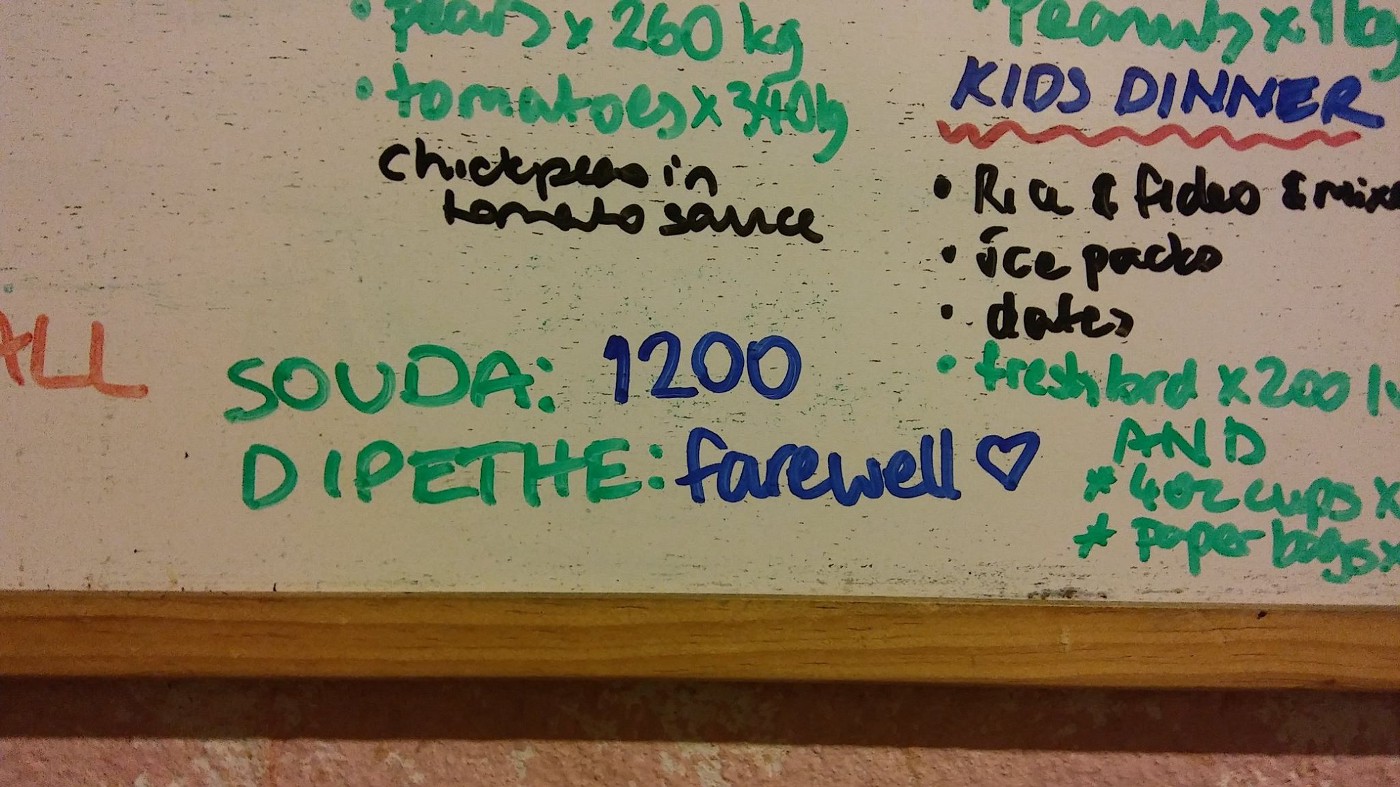 • pears x 260 kg
• tomatoes x 340kg
Chickpeas in
tomato sauce
ALL
SOUDA: 1200
DIPETHE: farewell ♡
• Peanuts x 1kg
KIDS DINNER
• Rice & fideo & mixe
• ice packs
• dates
• fresh x 200
AND
* 4oz cups x
* paper bags x